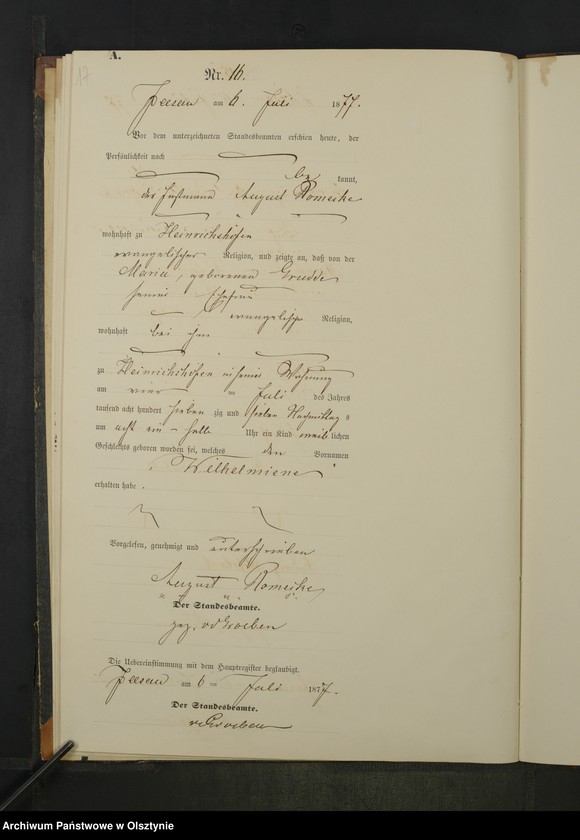 A.
17
Nr. 16.
am 6. Juli 1877.
Vor dem unterzeichneten Standesbeamten erschien heute, der
Persönlichkeit nach
be kannt,
der August Romeike
wohnhaft zu Heinrichshöfen
evangelischer Religion, und zeigte an, daß von der
Marie, geborenen Grudde
seiner Ehefrau
evangelischer Religion,
wohnhaft bei ihm
zu Heinrichshöfen in seiner Wohnung
am vier ten Juli des Jahres
tausend acht hundert sieben zig und sieben Nachmittag s
um acht ein halb Uhr ein Kind weib lichen
Geschlechts geboren worden sei, welches den Vornamen
Wilhelmiene
erhalten habe.
Vorgelesen, genehmigt und unterschrieben
August Romeike
Der Standesbeamte.
gez. vdGroeben
Die Uebereinstimmung mit dem Hauptregister beglaubigt.
am 6 ten Juli 1877.
Der Standesbeamte.
vdGroeben
Archiwum Państwowe w Olsztynie